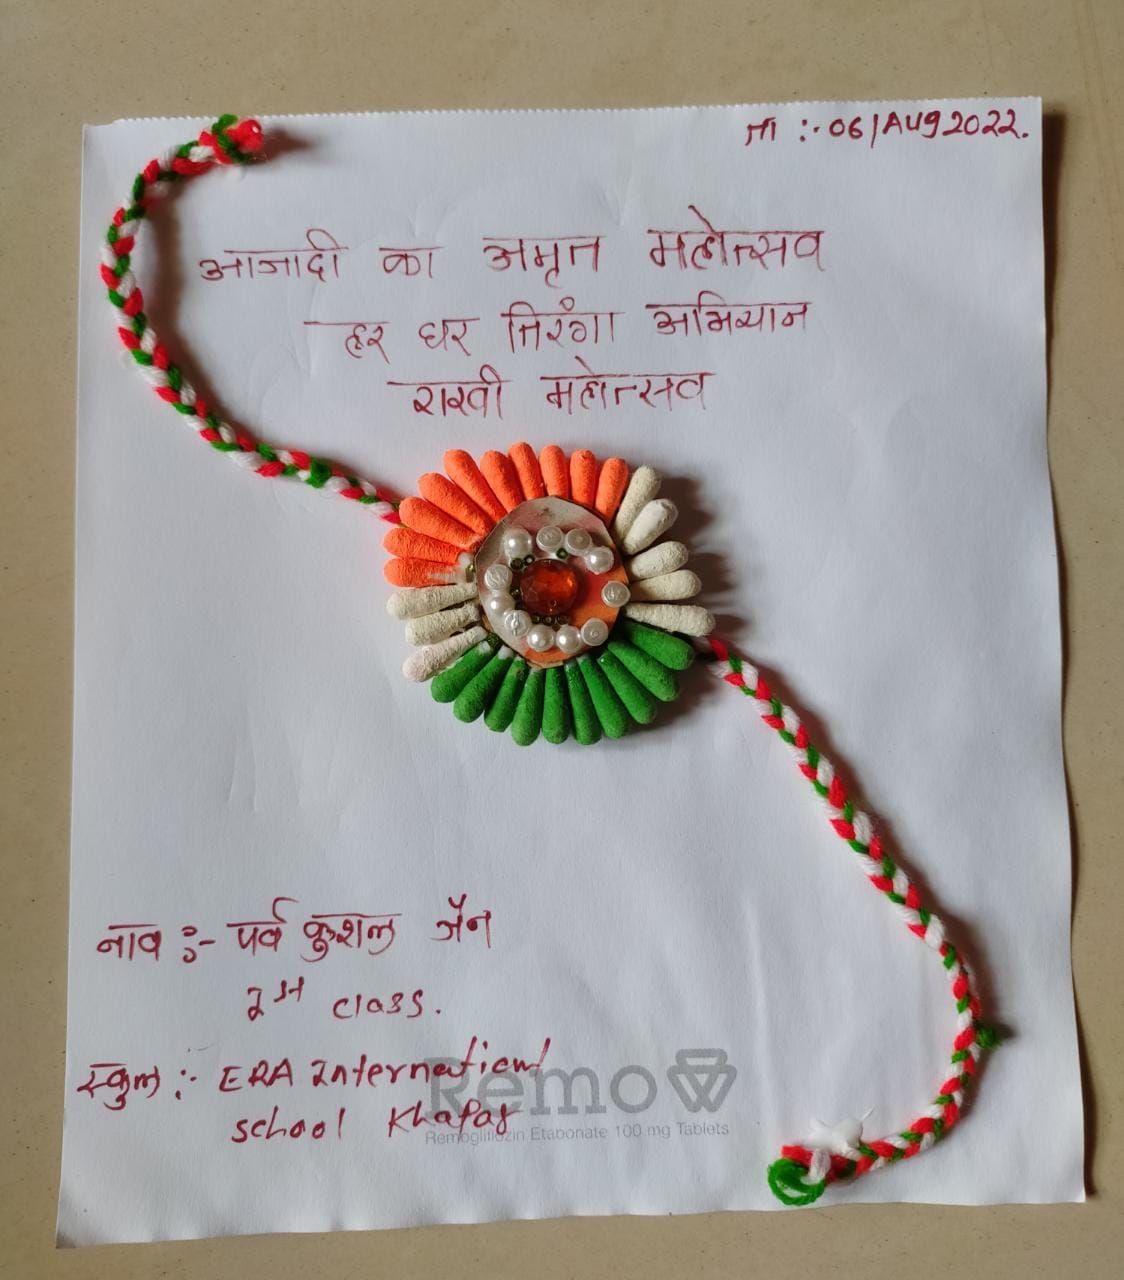 ता :- 06/Aug 2022.
आजादी का अमृत महोत्सव
हर घर तिरंगा अभियान
राखी महोत्सव
नाव :- पर्व कुशल जैन
2st class.
स्कुल :- ERA International
school Khapar
Remo
Remogliflozin Etabonate 100 mg Tablets